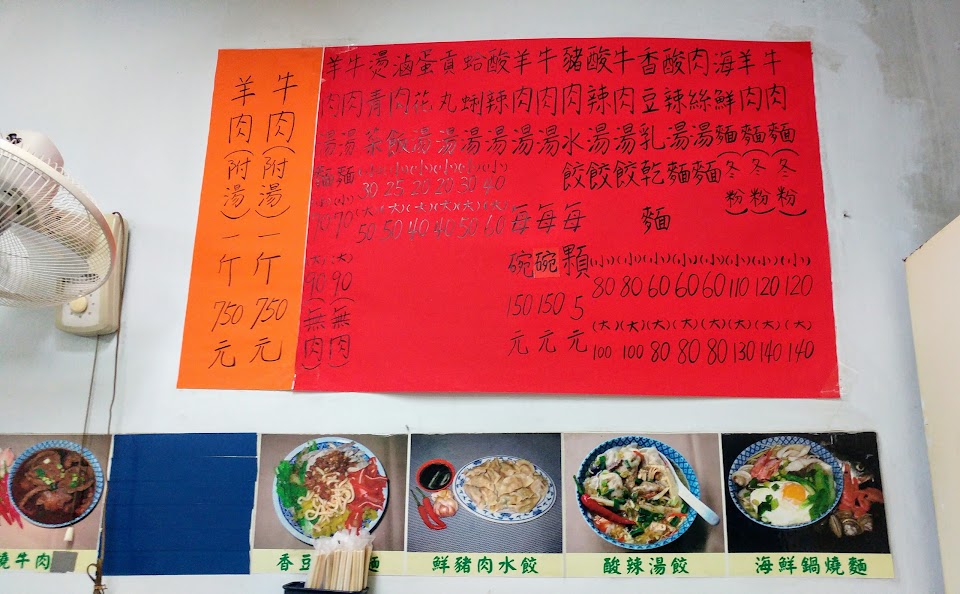 牛肉麵(冬粉)(小)120(大)140
羊肉麵(冬粉)(小)120(大)140
海鮮麵(冬粉)(小)110(大)130
肉絲湯麵(小)60(大)80
酸辣湯麵(小)60(大)80
香豆乳乾麵(小)60(大)80
牛肉湯餃(小)80(大)100
酸辣湯餃(小)80(大)100
豬肉水餃每顆5元
牛肉湯每碗150元
羊肉湯每碗150元
酸辣湯(小)40(大)60
蛤蜊湯(小)30(大)50
貢丸湯(小)20(大)40
蛋花湯(小)20(大)40
滷肉飯(小)25(大)50
燙青菜(小)30(大)50
牛肉湯麵(小)70(大)90(無肉)
羊肉湯麵(小)70(大)90(無肉)
牛肉(附湯)一斤750元
羊肉(附湯)一斤750元
燒牛肉
香豆 麵
鮮豬肉水餃
酸辣湯餃
海鮮鍋燒麵